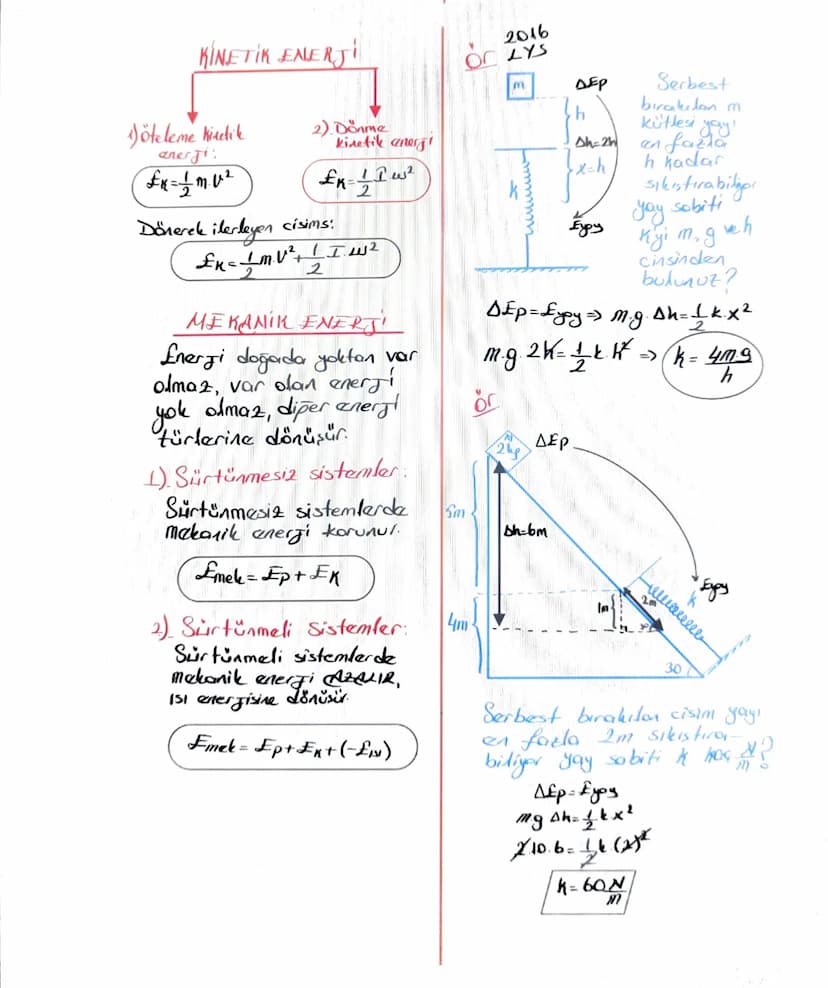 KİNETİK ENERJİ
1) Öteleme kinetik
enerji:
2) Dönme
kinetik enerji
Eₖ=1/2 m.V²
Eₖ=1/2 I.ω²
Dönerek ilerleyen cisims:
Eₖ=1/2 m V²+1/2 I.ω²
MEKANİK ENERJİ
Enerji doğada yoktan var
olmaz, var olan enerji
yok olmaz, diper enerji
türlerine dönüşür.
1) Sürtünmesiz sistemler:
Sürtünmesiz sistemlerde
mekanik enerji korunur.
Emek = Ep + EK
2) Sürtünmeli sistemler:
Sürtünmeli sistemlerde
mekanik enerji AZALIR,
ISI enerjisine dönüşür.
Emek = Ep + EK + (-EISI)
Ör
2016
LYS
m
ΔEp
h
Δh=2h
x=h
k
Eypy
Serbest
bırakılan m
kütlesi yayı
en fazla
h kadar
sıkıştırabiliyor
yay sabiti
k'yi m, g ve h
cinsinden
bulunuz?
ΔEp = Eypy ⇒ m.g.Δh = 1/2 k.x²
m.g.2h = 1/2 k.h² ⇒ k = 4mg/h
Ör
2kg
ΔEp
5m
Δh=6m
Eypy
k
2m
1m
4m
30
Serbest bırakılan cisim yayı
en fazla 2m sıkıştıra-
biliyor yay sabiti k kaç N/m?
ΔEp = Eypy
mg Δh = 1/2 k x²
2 10.6 = 1/2 k (2)²
k = 60 N/m